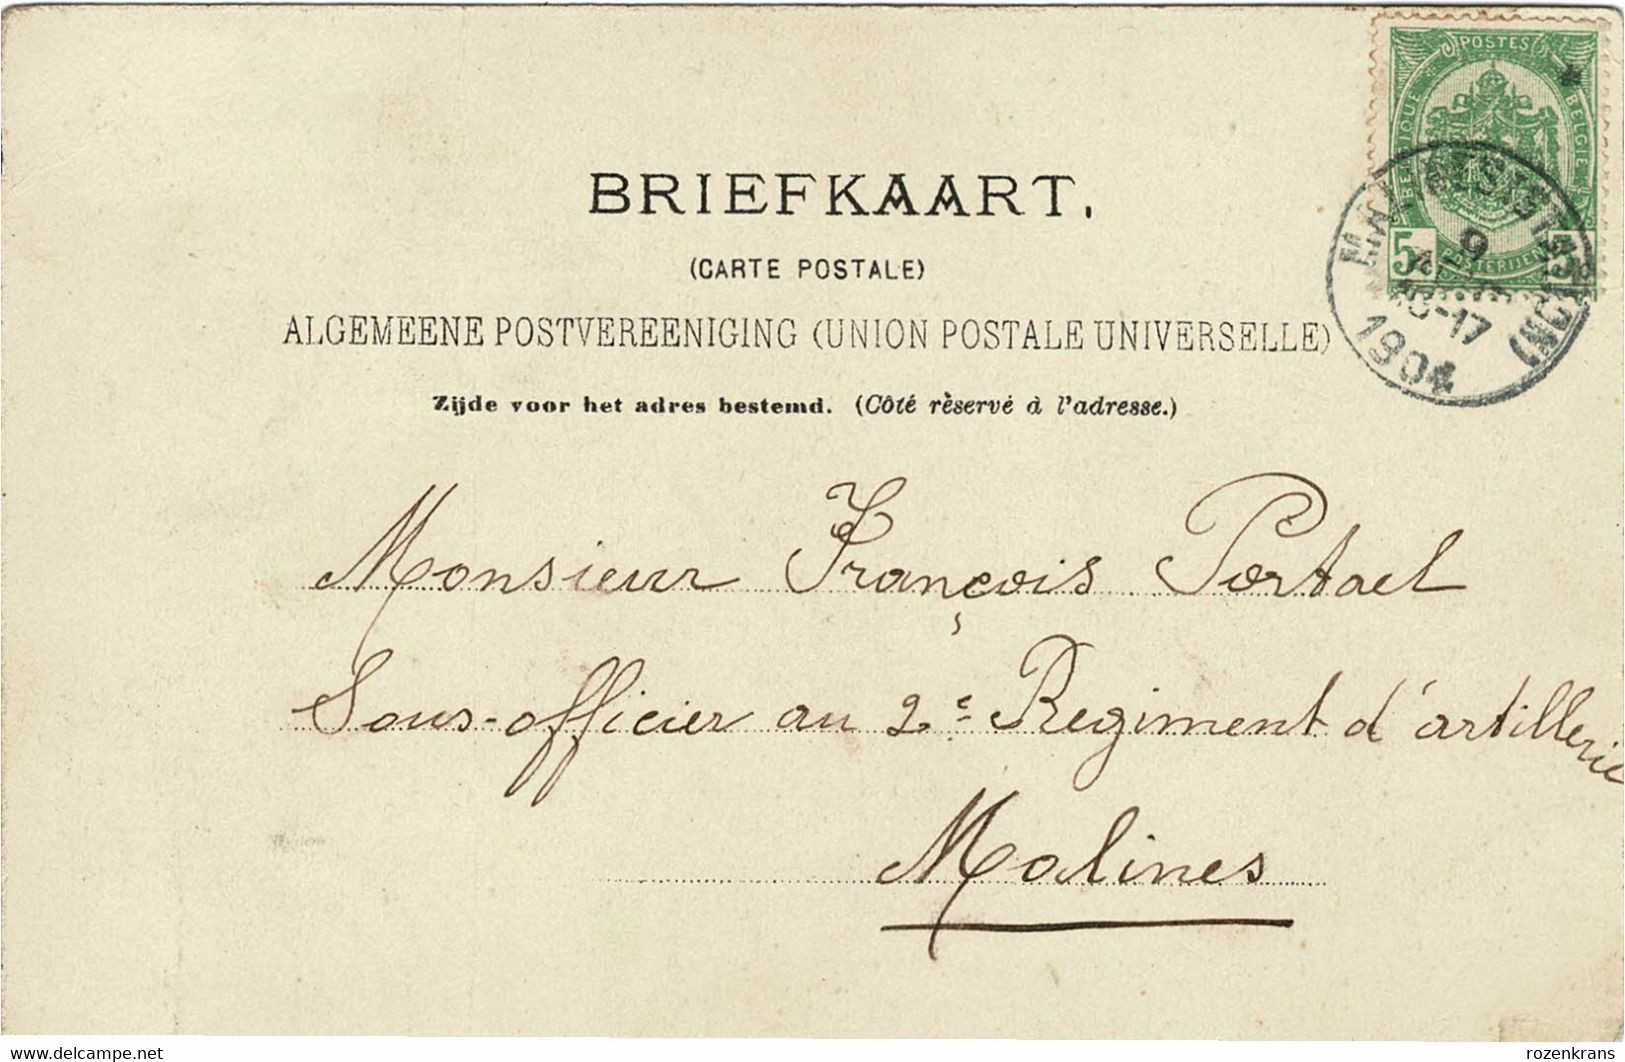 POSTES
BELGIQUE
BELGIE
5 5
9
-17
1904
BRIEFKAART.
(CARTE POSTALE)
ALGEMEENE POSTVEREENIGING (UNION POSTALE UNIVERSELLE)
Zijde voor het adres bestemd. (Côté rèservé à l'adresse.)
Monsieur François Portael
Sous-officier au 2e Regiment d'artillerie
Malines
delcampe.net
rozenkrans